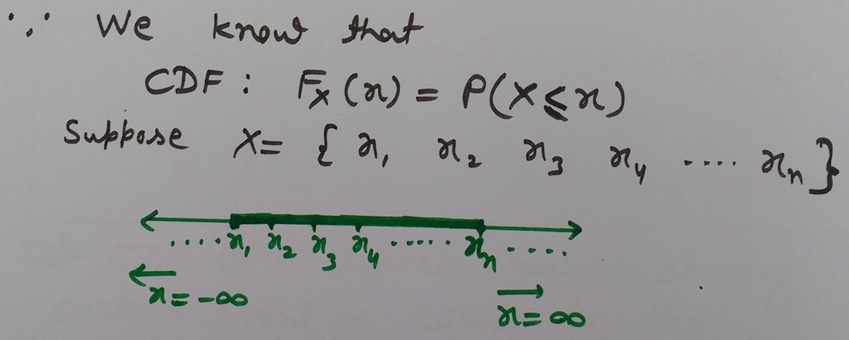 ∵ We know that
CDF : Fₓ(x) = P(X ≤ x)
Suppose X = { x₁ x₂ x₃ x₄ .... xₙ }
.... x₁ x₂ x₃ x₄ ..... xₙ ....
x = -∞
x = ∞